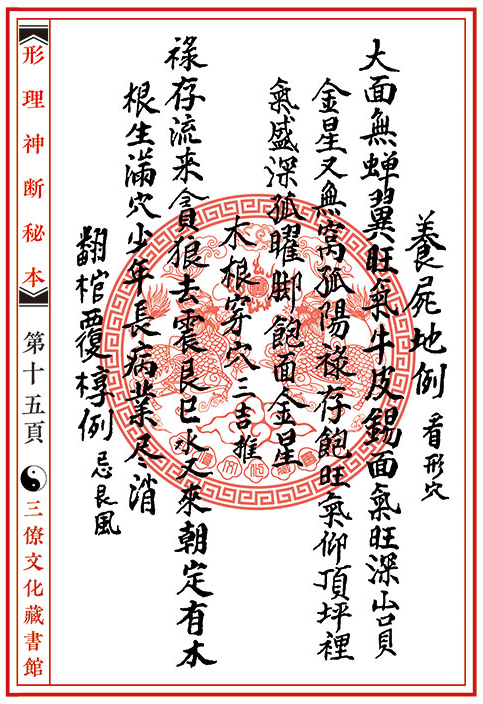 養屍地例 看形穴
大面無蟬翼旺氣牛皮錫面氣旺深山員
金星又無窩孤陽祿存飽旺氣仰頂坪裡
氣盛深孤曜脚飽面金星
木根穿穴 三吉推
祿存流来貪狼去震艮巳水又來朝定有木
根生滿穴少年長病業尽消
翻棺覆椁例 忌艮風
形理神断秘本 第十五頁 三僚文化藏書館